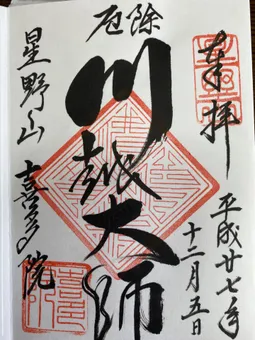 奉拝
平成廿七年
十二月五日
厄除
川越大師
星野山
喜多院